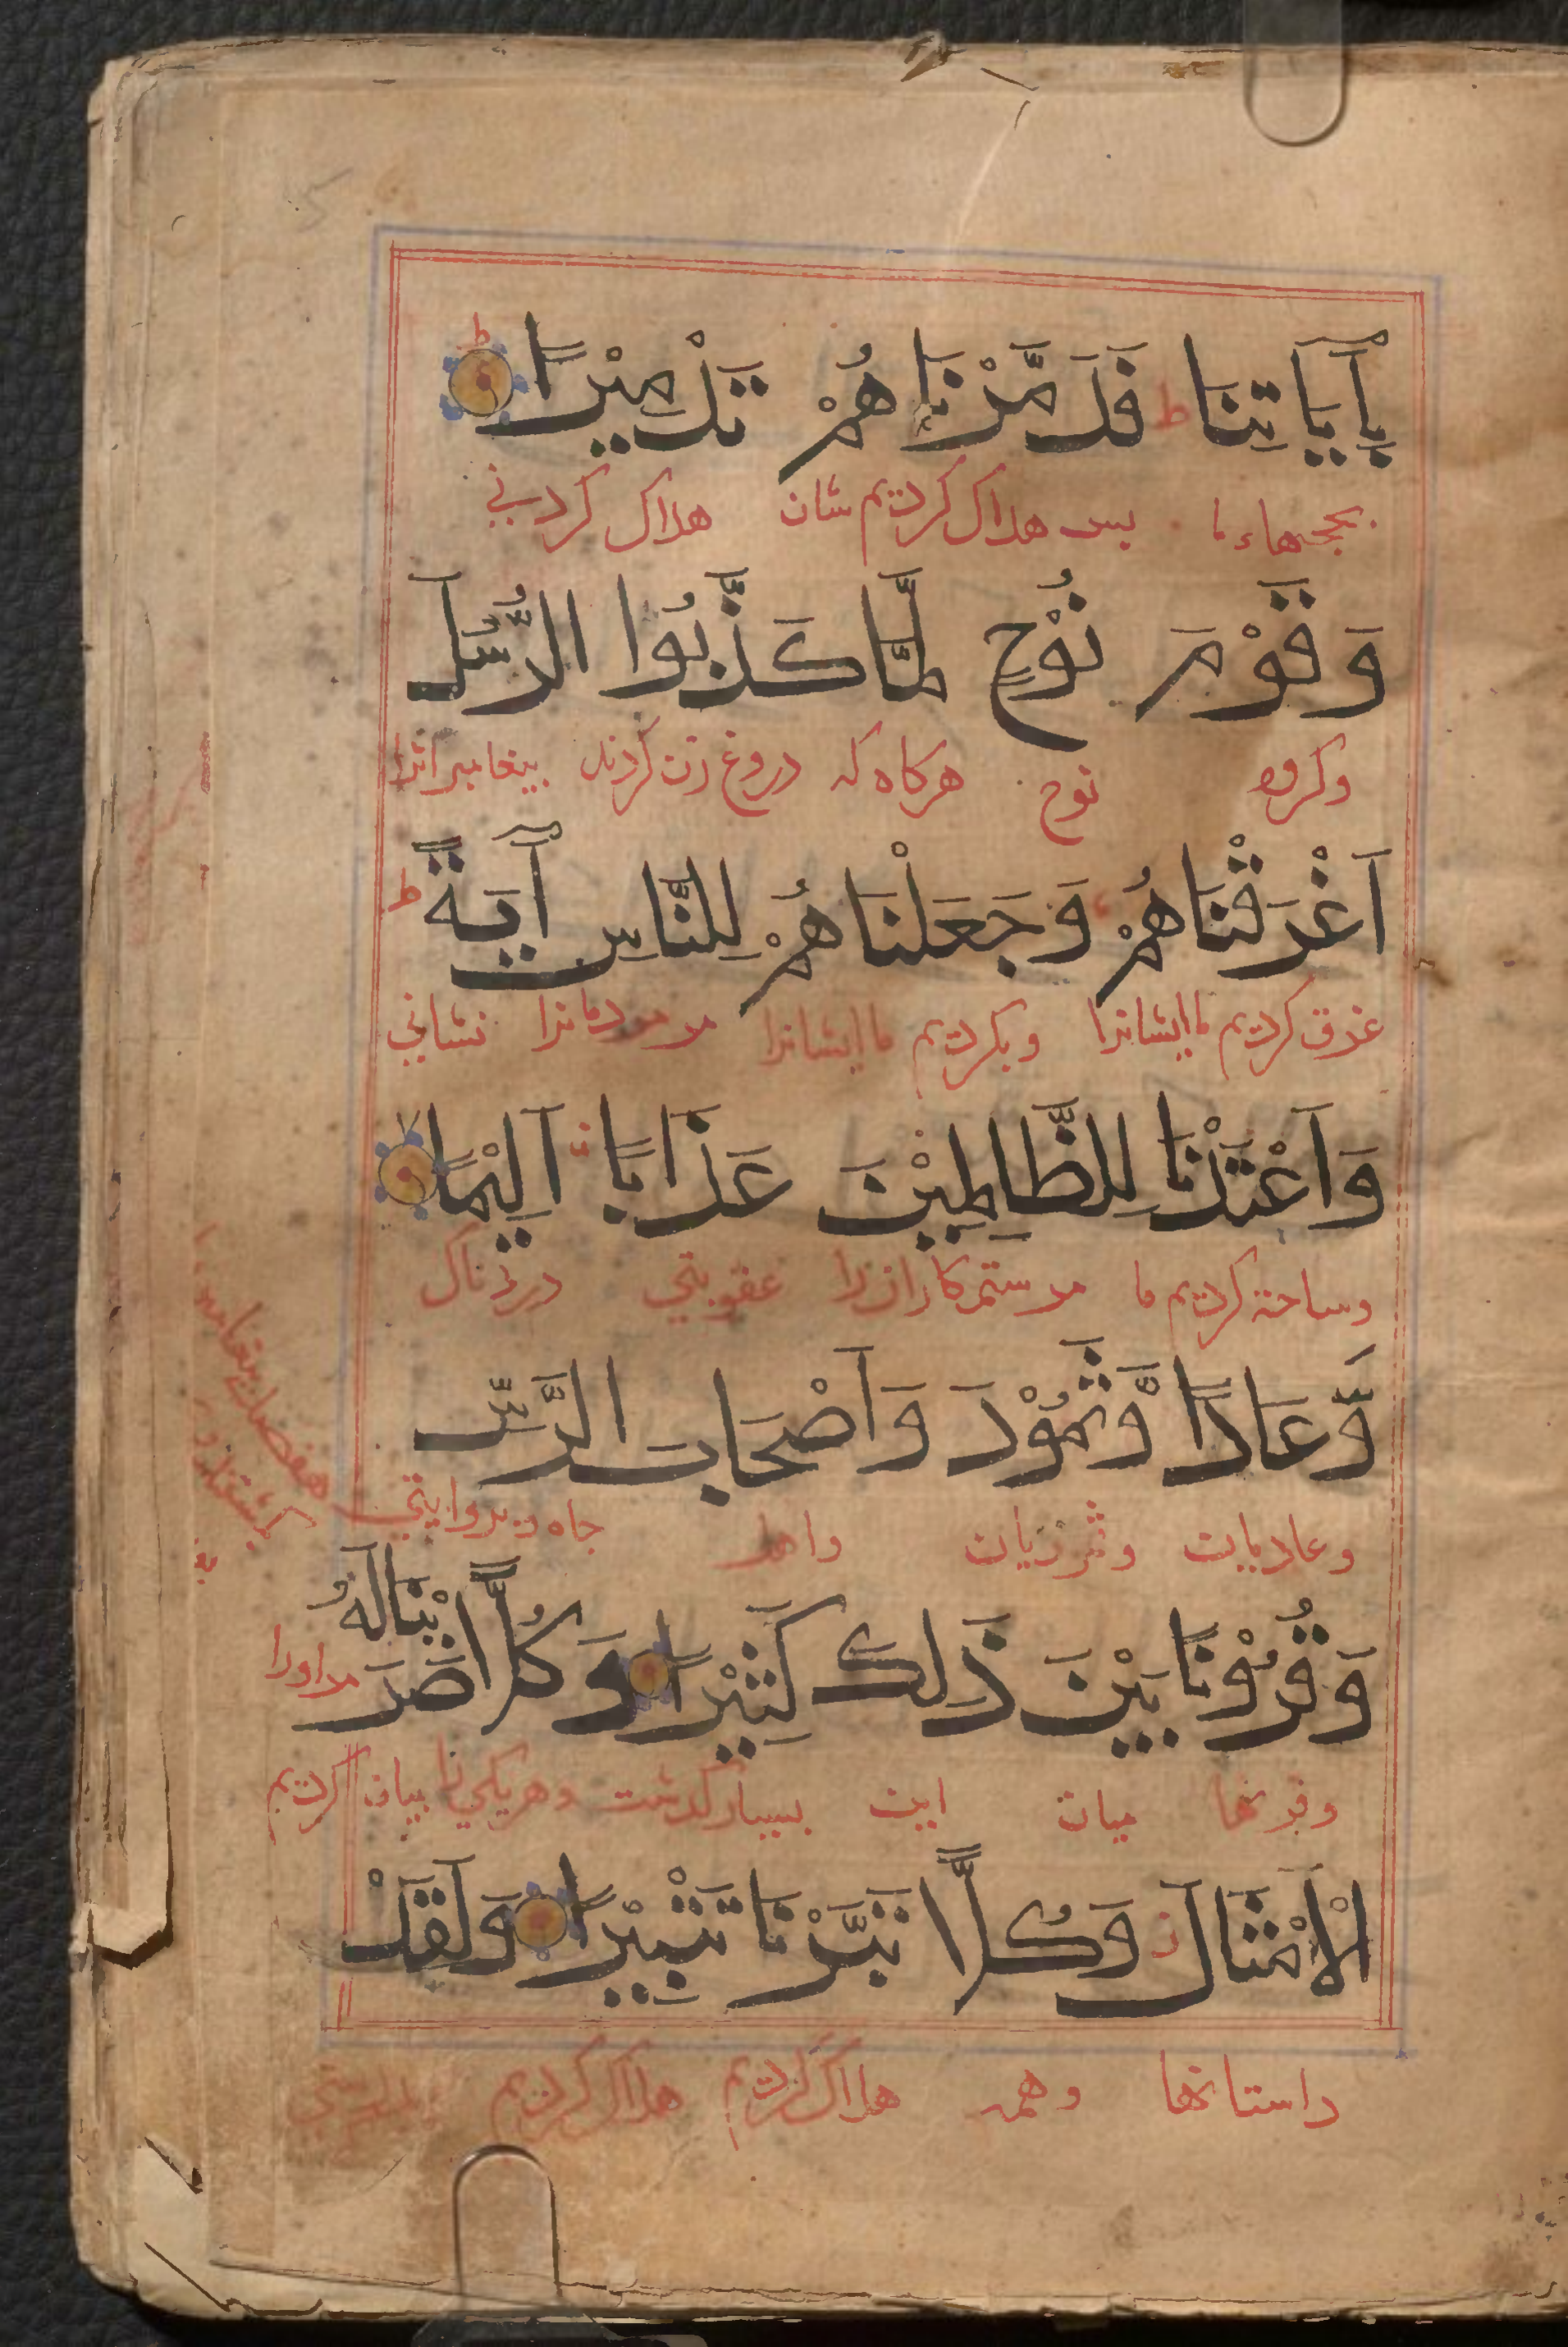 بِآيَاتِنَا ط فَدَمَّرْنَاهُمْ تَدْمِيْرًا ط
بحجتهاء ما بس هلاک کردیم شان هلاک کردنی
وَقَوْمَ نُوْحٍ لَمَّا كَذَّبُوا الرُّسُلَ
وکروه نوح هرکاه که دروغ زن کردند بیغامبرانرا
اَغْرَقْنَاهُمْ وَجَعَلْنَاهُمْ لِلنَّاسِ آيَةً ط
غرق کردیم ما ایشانرا وبکردیم ما ایشانرا مر مردمانرا نشانی
وَاَعْتَدْنَا لِلظَّالِمِيْنَ عَذَابًا اَلِيْمًا
وساخته کردیم ما مر ستمکارانرا عقوبتی دردناک
وَّعَادًا وَّثَمُوْدَ وَاَصْحَابَ الرَّسِّ
وعادیان وثمودیان واهل جاه وبروایتی
هفصد بیغامبر
وَقُرُوْنًا بَيْنَ ذَلِكَ كَثِيْرًا وَكُلًّا ضَرَبْنَا لَهُ
مراورا
وقرنها میان این بسیار کذشت وهریکی را بیان کردیم
الْاَمْثَالَ ز وَكُلًّا تَبَّرْنَا تَتْبِيْرًا وَلَقَدْ
داستانها وهمه هلاک کردیم هلاک کردیم